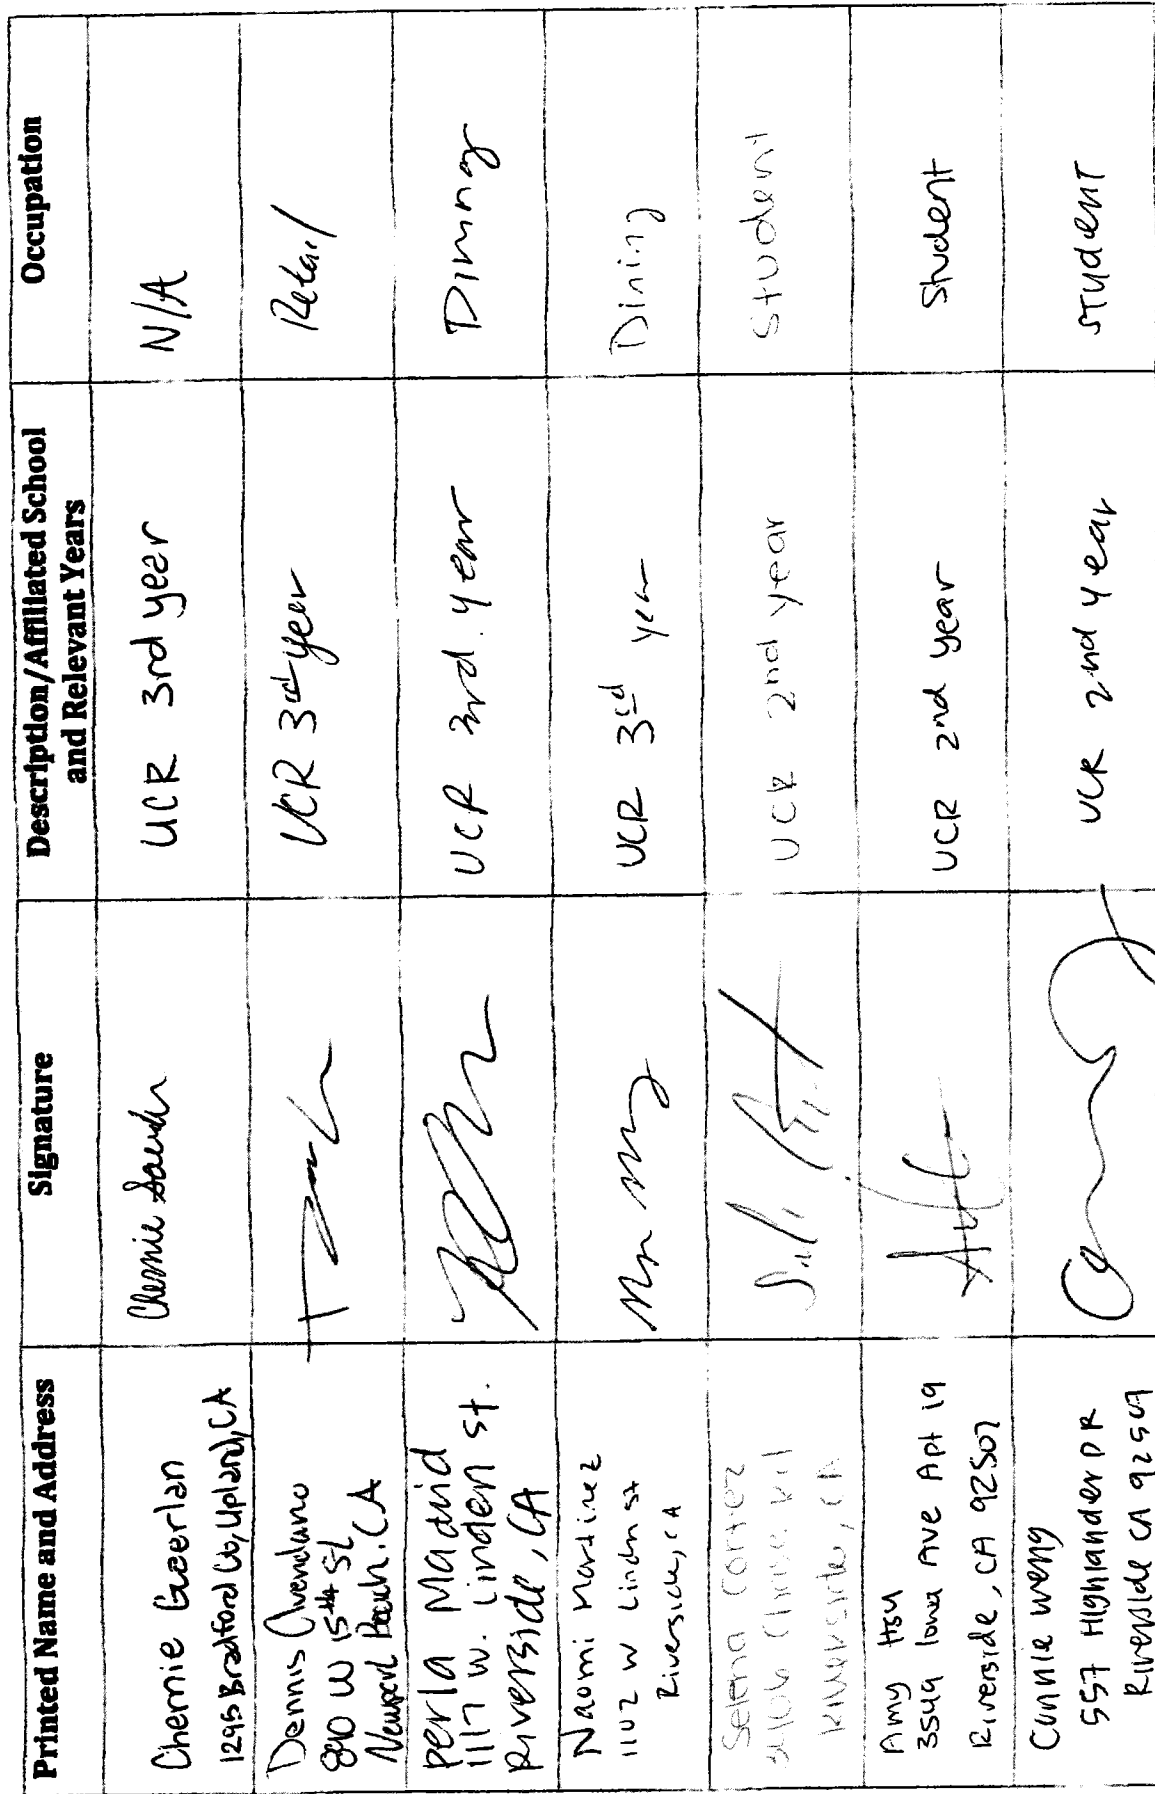 Printed Name and Address
Signature
Description/Affiliated School
and Relevant Years
Occupation
Chernie Gaerlan
1295 Bradford Co, Upland, CA
UCR 3rd year
N/A
Dennis Avendano
890 W 15th St
Newport Beach. CA
UCR 3rd year
Retail
perla Madrid
1117 w. Linden st.
Riverside, CA
UCR 3rd. year
Dining
Naomi Martinez
1102 W Linden st
Riverside, CA
UCR 3rd year
Dining
Selena Cortez
Riverside, CA
UCR 2nd year
Student
Amy Hsu
3549 Iowa Ave Apt 19
Riverside, CA 92507
UCR 2nd year
Student
Connie Weng
557 Highlander DR
Riverside CA 92507
UCR 2nd year
STUDENT